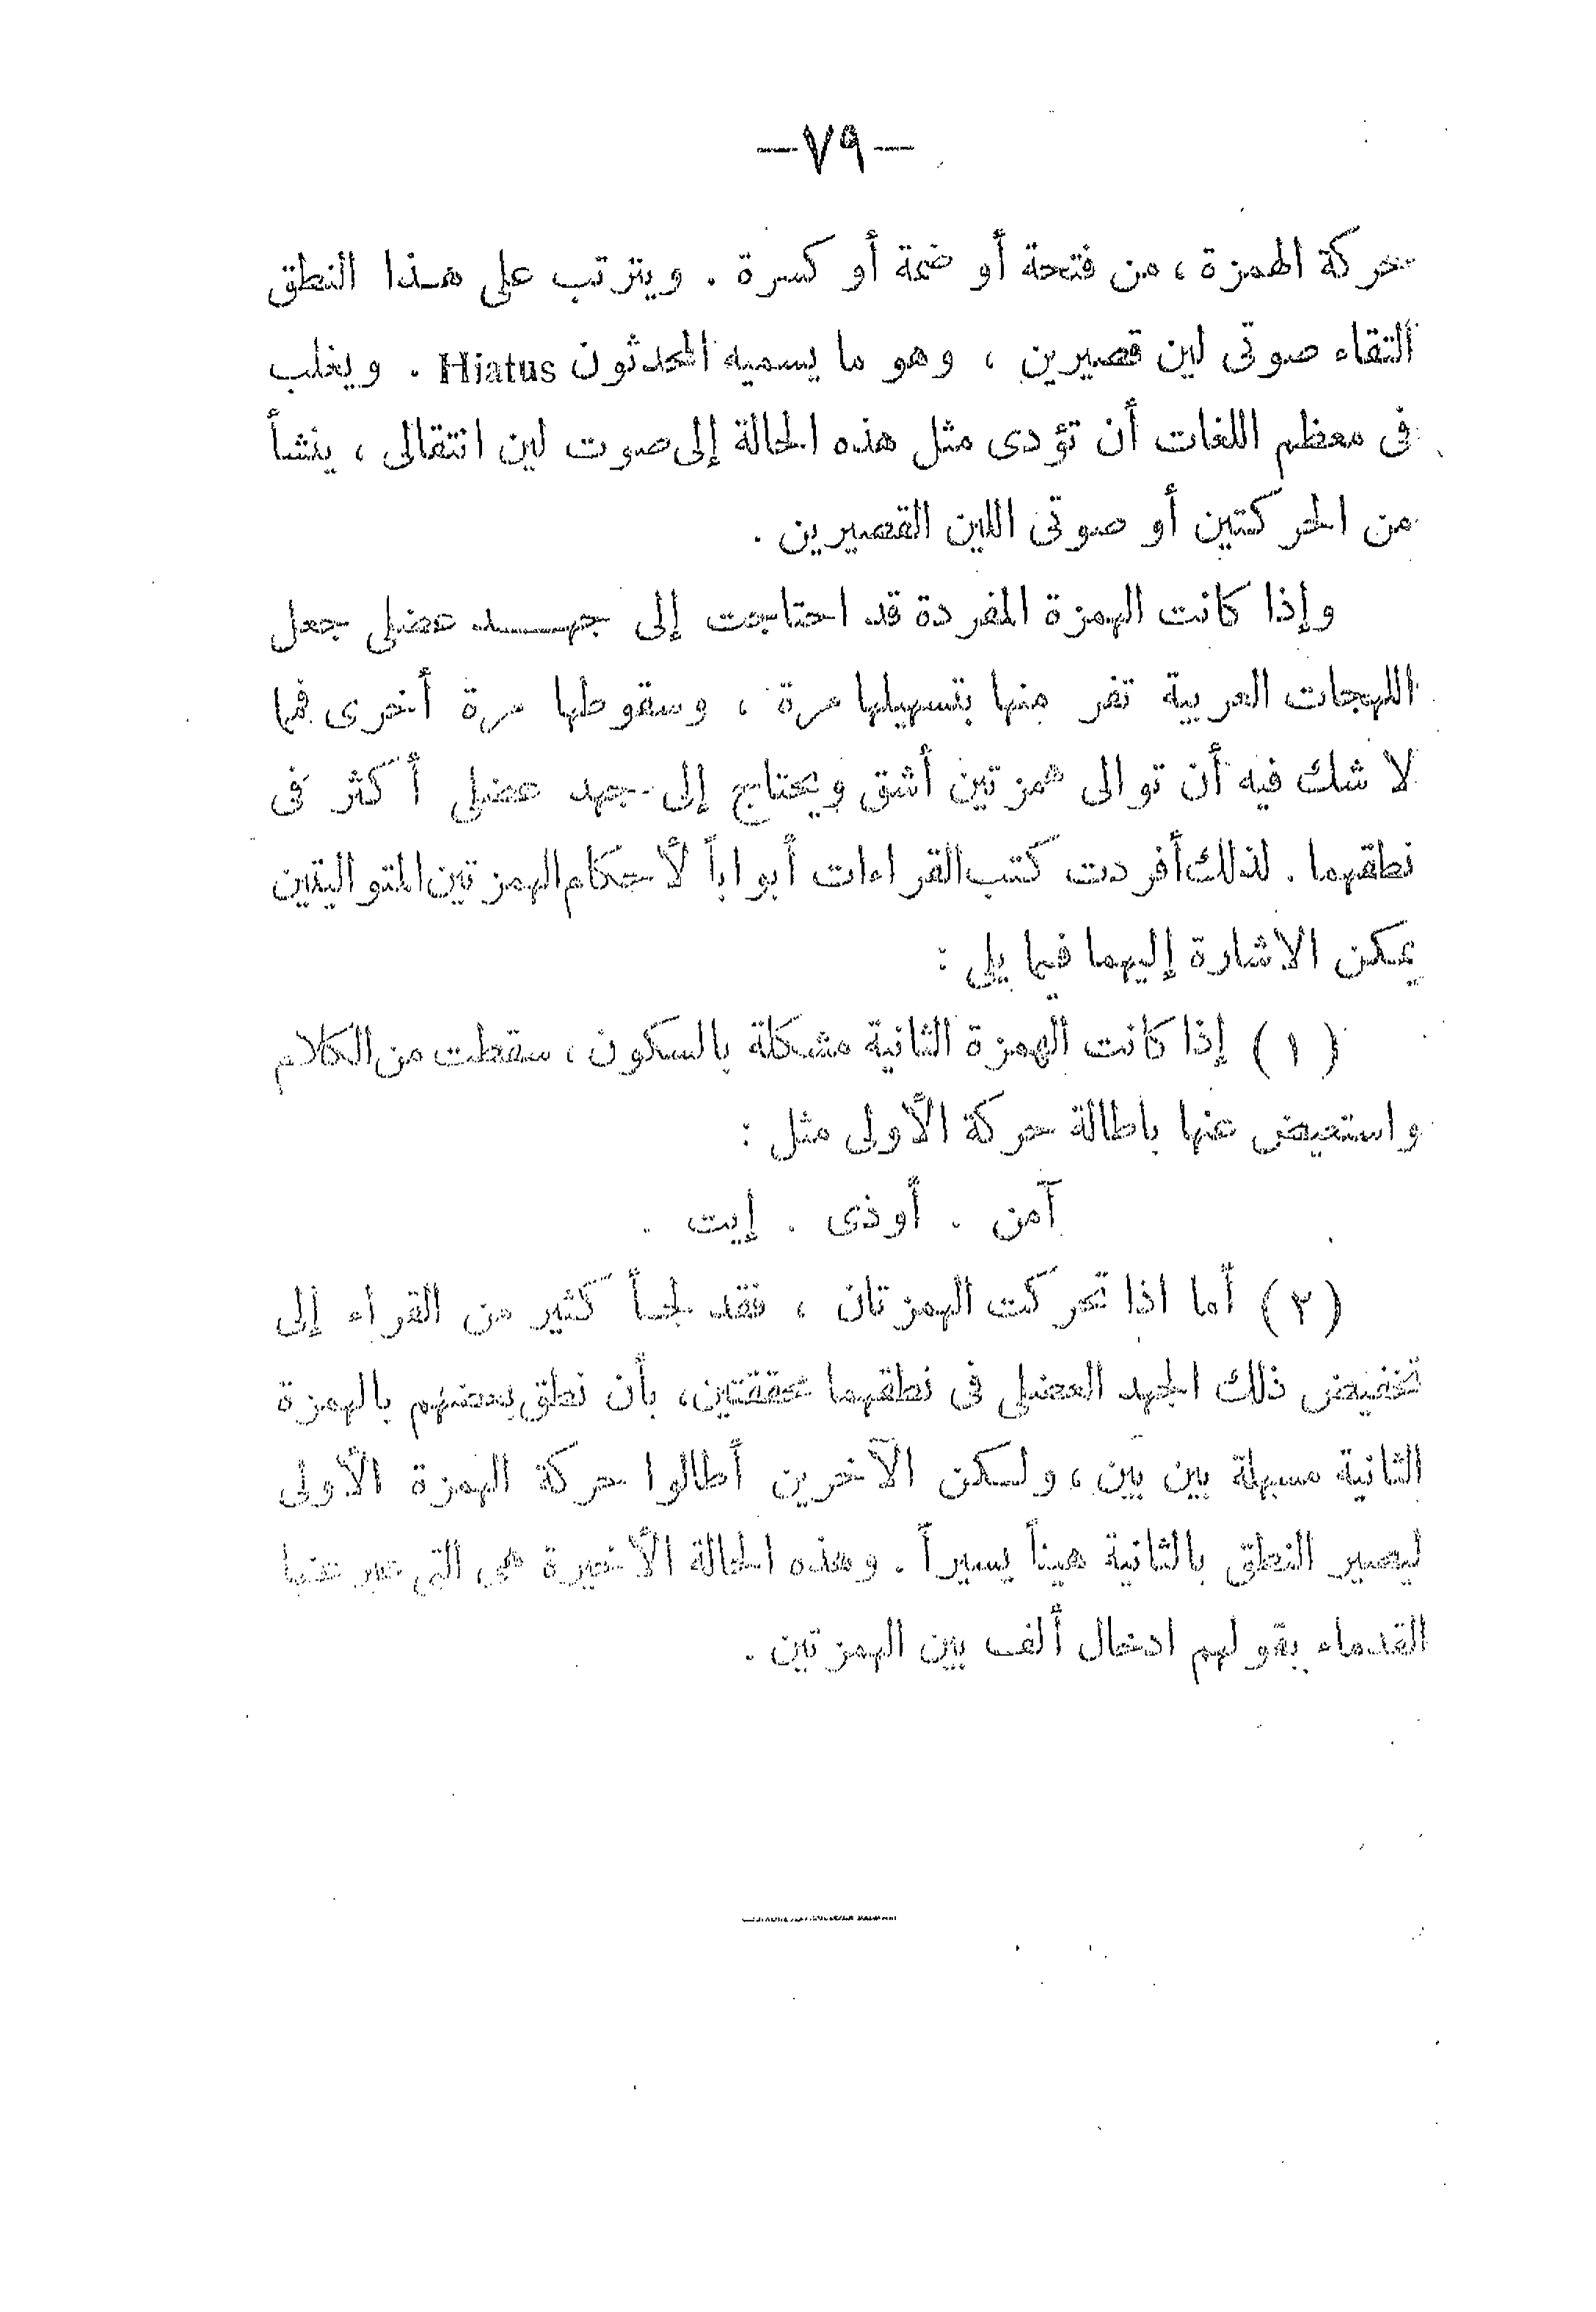 —٧٩—
حركة الهمزة ، من فتحة أو ضمة أو كسرة . ويترتب على هـذا النطق
التقاء صوتى لين قصيرين ، وهو ما يسميه المحدثون Hiatus . ويغلب
فى معظم اللغات أن تؤدى مثل هذه الحالة إلى صوت لين انتقالى ، ينشأ
من الحركتين أو صوتى اللين القصيرين .
وإذا كانت الهمزة المفردة قد احتاجت إلى جهـــد عضلى جعل
اللهجات العربية تفر منها بتسهيلها مرة ، وسقوطها مرة أخرى فما
لا شك فيه أن توالى همزتين أشق ويحتاج إلى جهد عضلى أكثر فى
نطقهما . لذلك أفردت كتب القراءات أبواباً لأحكام الهمزتين المتواليتين
يمكن الاشارة إليهما فيما يلى :
(١) إذا كانت الهمزة الثانية مشكلة بالسكون ، سقطت من الكلام
واستعيض عنها باطالة حركة الأولى مثل :
آمن . أوذى . إيت .
(٢) أما اذا تحركت الهمزتان ، فقد لجأ كثير من القراء إلى
تخفيض ذلك الجهد العضلى فى نطقهما محققتين ، بأن نطق بعضهم بالهمزة
الثانية مسهلة بين بين ، ولكن الآخرين أطالوا حركة الهمزة الأولى
ليصير النطق بالثانية هيناً يسيراً . وهذه الحالة الأخيرة هى التى عبر عنها
القدماء بقولهم ادخال ألف بين الهمزتين .